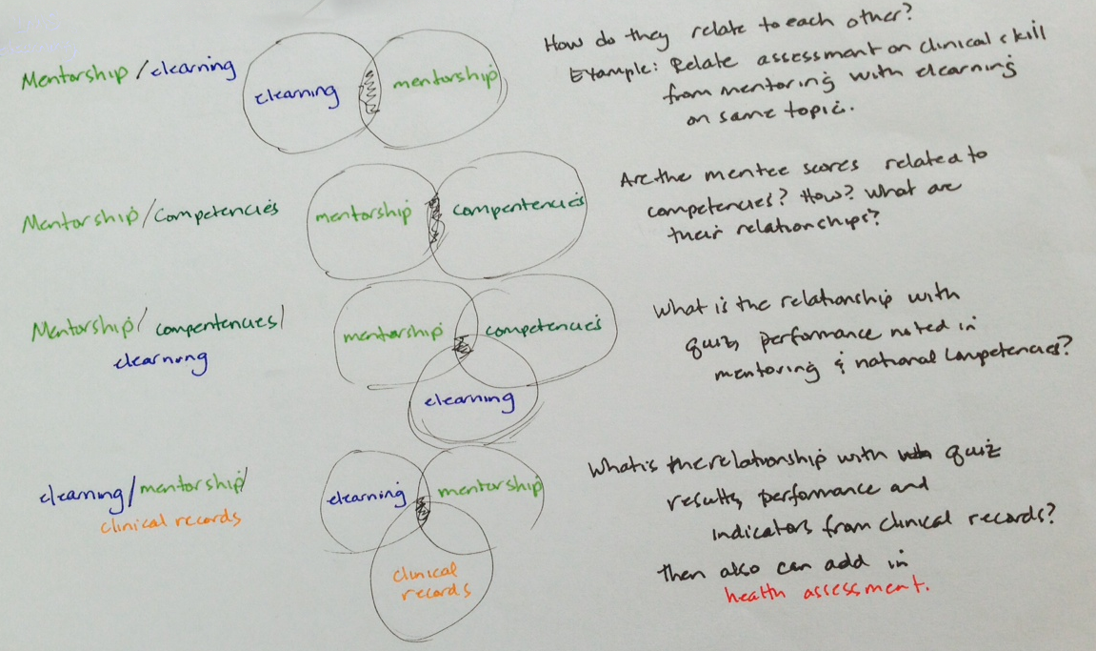 Mentorship/elearning
elearning
mentorship
How do they relate to each other?
Example: Relate assessment on clinical skill
from mentoring with elearning
on same topic.
Mentorship/Competencies
mentorship
compentencies
Are the mentee scores related to
competencies? How? What are
their relationships?
Mentorship/compentencies/
elearning
mentorship
competencies
elearning
What is the relationship with
quiz, performance noted in
mentoring & national competencies?
elearning/mentorship/
clinical records
elearning
mentorship
clinical
records
What is the relationship with quiz
results, performance and
indicators from clinical records?
Then also can add in
health assessment.